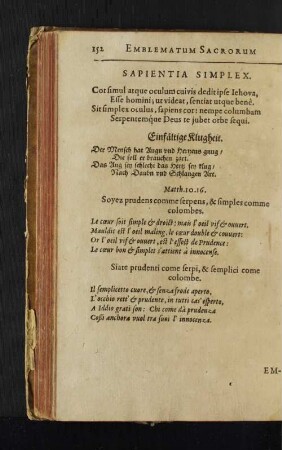 152 EMBLEMATUM SACRORUM
SAPIENTIA SIMPLEX.
Cor simul atque oculum cuivis dedit ipse Iehova,
Esse homini; ut videat, sentiat utque benè.
Sit simplex oculus, sapiens cor: nempe columbam
Serpentemq́ue Deus te jubet orbe sequi.
Einfältige Klugheit.
Der Mensch hat Augn vnd Hertzens gnug/
Die soll er brauchen zart.
Das Aug sey schlecht das Hertz sey klug/
Nach Daubn vnd Schlangen Art.
Matth. 10. 16.
Soyez prudens comme serpens, & simples comme
colombes.
Le cœur soit simple & droict; mais l'oeil vif & ouvert.
Mauldit est l'oeil maling, le cœur double & couvert:
Or l'oeil vif & ouvert, est l'effect de Prudence:
Le cœur bon & simple s'attient à innocense.
State prudenti come serpi, & semplici come
colombe.
Il semplicetto cuore, & senza frode aperto,
L'occhio rett' & prudente, in tutti cas' esperto,
A Iddio grati son: Chi come dà prudenza
Così anchora vuol tra suoi l' innocenza.
EM-